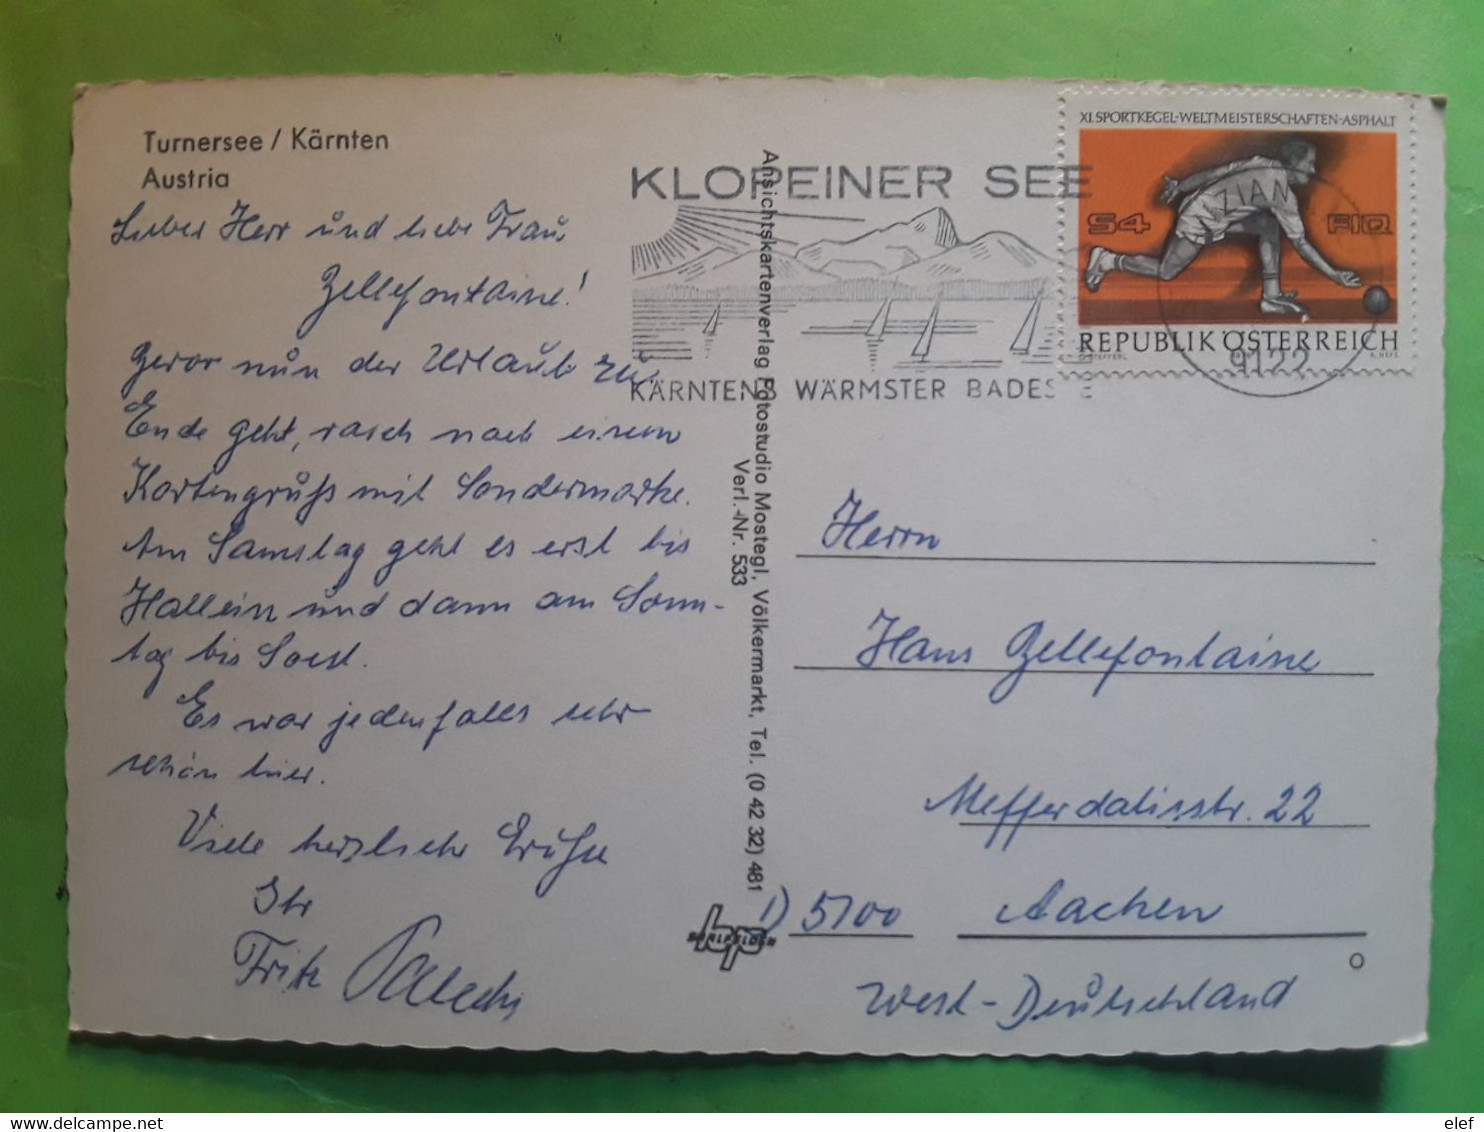 Turnersee / Kärnten
Austria
Lieber Herr und liebe Frau
Bellefontaine!
Bevor nun der Urlaub zu
Ende geht, rasch noch einen
Kartengruß mit Sondermarke.
Am Samstag geht es erst bis
Hallein und dann am Sonn-
tag bis Soest.
Es war jedenfalls sehr
schön hier.
Viele herzliche Grüße
Ihr
Fritz
Ansichtskartenverlag Fotostudio Mostegl, Völkermarkt, Tel. (0 42 32) 481
Verl.-Nr. 533
KLOPEINER SEE
KÄRNTENS WÄRMSTER BADESEE
XI. SPORTKEGEL-WELTMEISTERSCHAFTEN-ASPHALT
S4 FIQ
REPUBLIK ÖSTERREICH
9122
Herrn
Hans Bellefontaine
Mefferdatisstr. 22
D 5100 Aachen
West-Deutschland
hp
O
elef